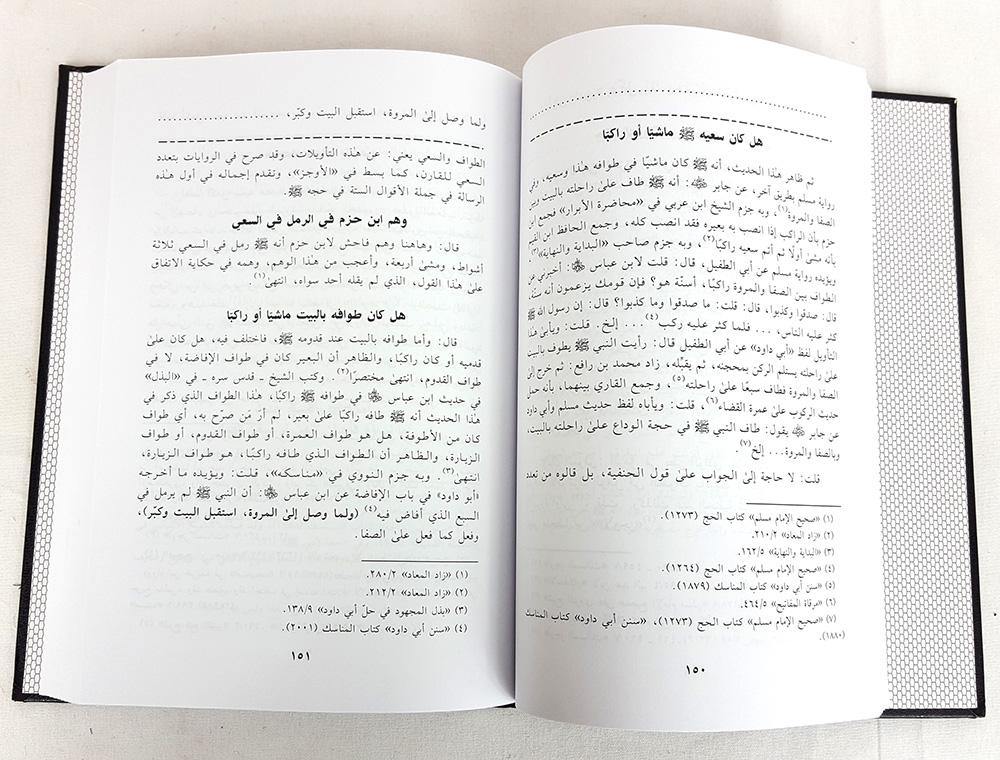 هل كان سعيه ﷺ ماشيًا أو راكبًا
ثم ظاهر هذا الحديث، أنه ﷺ كان ماشيًا في طوافه هذا وسعيه، وفي
رواية مسلم بطريق آخر، عن جابر ﷺ: أنه ﷺ طاف على راحلته بالبيت وبين
الصفا والمروة(١)، وبه جزم الشيخ ابن عربي في «محاضرة الأبرار» فجمع ابن
حزم بأن الراكب إذا انصب به بعيره فقد انصب كله، وجمع الحافظ ابن القيم
بأنه مشى أولًا ثم أتم سعيه راكبًا(٢)، وبه جزم صاحب «البداية والنهاية»(٣)،
ويؤيده رواية مسلم عن أبي الطفيل، قال: قلت لابن عباس: أخبرني عن
الطواف بين الصفا والمروة راكبًا، أسنّة هو؟ فإن قومك يزعمون أنه سنّة،
قال: صدقوا وكذبوا، قال: قلت: ما صدقوا وما كذبوا؟ قال: إن رسول الله ﷺ
كثر عليه الناس، ... فلما كثر عليه ركب(٤) ... إلخ. قلت: ويأبى هذا
التأويل لفظ «أبي داود» عن أبي الطفيل قال: رأيت النبي ﷺ يطوف بالبيت
على راحلته يستلم الركن بمحجنه، ثم يقبّله، زاد محمد بن رافع: ثم خرج إلى
الصفا والمروة فطاف سبعًا على راحلته(٥)، وجمع القاري بينهما، بأنه حمل
حديث الركوب على عمرة القضاء(٦)، قلت: ويأباه لفظ حديث مسلم وأبي داود
عن جابر يقول: طاف النبي ﷺ في حجة الوداع على راحلته بالبيت،
وبالصفا والمروة... إلخ(٧).
قلت: لا حاجة إلى الجواب على قول الحنفية، بل قالوه من تعدد
(١) «صحيح الإمام مسلم» كتاب الحج (١٢٧٣).
(٢) «زاد المعاد» ٢١٠/٢.
(٣) «البداية والنهاية» ١٦٢/٥.
(٤) «صحيح الإمام مسلم» كتاب الحج (١٢٦٤).
(٥) «سنن أبي داود» كتاب المناسك (١٨٧٩).
(٦) «مرقاة المفاتيح» ٤٦٤/٥.
(٧) «صحيح الإمام مسلم» كتاب الحج (١٢٧٣)، «سنن أبي داود» كتاب المناسك
(١٨٨٠).
١٥٠
ولما وصل إلى المروة، استقبل البيت وكبّر، ......................
الطواف والسعي يعني: عن هذه التأويلات، وقد صرح في الروايات بتعدد
السعي للقارن، كما بسط في «الأوجز»، وتقدم إجماله في أول هذه
الرسالة في جملة الأقوال الستة في حجه ﷺ.
وهم ابن حزم في الرمل في السعي
قال: وهاهنا وهم فاحش لابن حزم أنه ﷺ رمل في السعي ثلاثة
أشواط، ومشى أربعة، وأعجب من هذا الوهم، وهمه في حكاية الاتفاق
على هذا القول، الذي لم يقله أحد سواه، انتهى(١).
هل كان طوافه بالبيت ماشيًا أو راكبًا
قال: وأما طوافه بالبيت عند قدومه ﷺ، فاختلف فيه، هل كان على
قدميه أو كان راكبًا، والظاهر أن البعير كان في طواف الإفاضة، لا في
طواف القدوم، انتهى مختصرًا(٢). وكتب الشيخ ـ قدس سره ـ في «البذل»
في حديث ابن عباس في طوافه ﷺ راكبًا، هذا الطواف الذي ذكر في
هذا الحديث أنه ﷺ طافه راكبًا على بعير، لم أرَ مَن صرّح به، أي طواف
كان من الأطوفة، هل هو طواف العمرة، أو طواف القدوم، أو طواف
الزيارة، والظاهر أن الطواف الذي طافه راكبًا، هو طواف الزيارة،
انتهى(٣). وبه جزم النووي في «مناسكه»، قلت: ويؤيده ما أخرجه
«أبو داود» في باب الإفاضة عن ابن عباس: أن النبي ﷺ لم يرمل في
السبع الذي أفاض فيه(٤) (ولما وصل إلى المروة، استقبل البيت وكبّر)،
وفعل كما فعل على الصفا.
(١) «زاد المعاد» ٢٨٠/٢.
(٢) «زاد المعاد» ٢١٢/٢.
(٣) «بذل المجهود في حلّ أبي داود» ١٣٨/٩.
(٤) «سنن أبي داود» كتاب المناسك (٢٠٠١).
١٥١